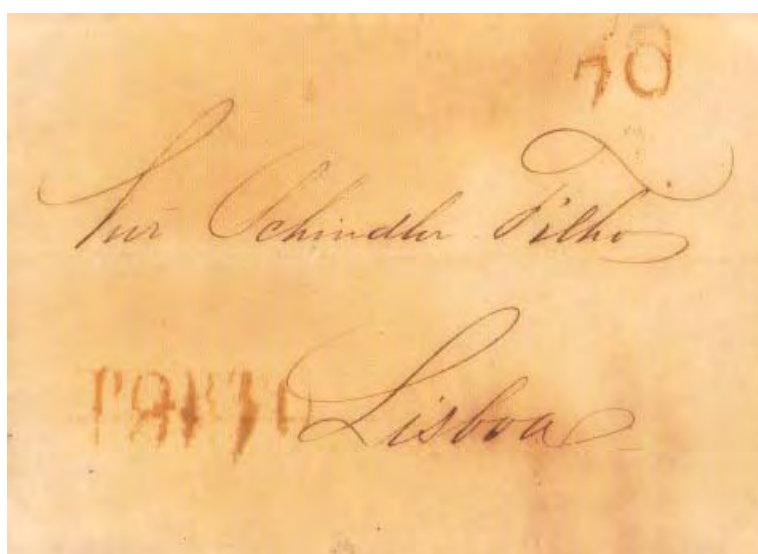 40
Snr Schindler Filho
PORTO Lisboa